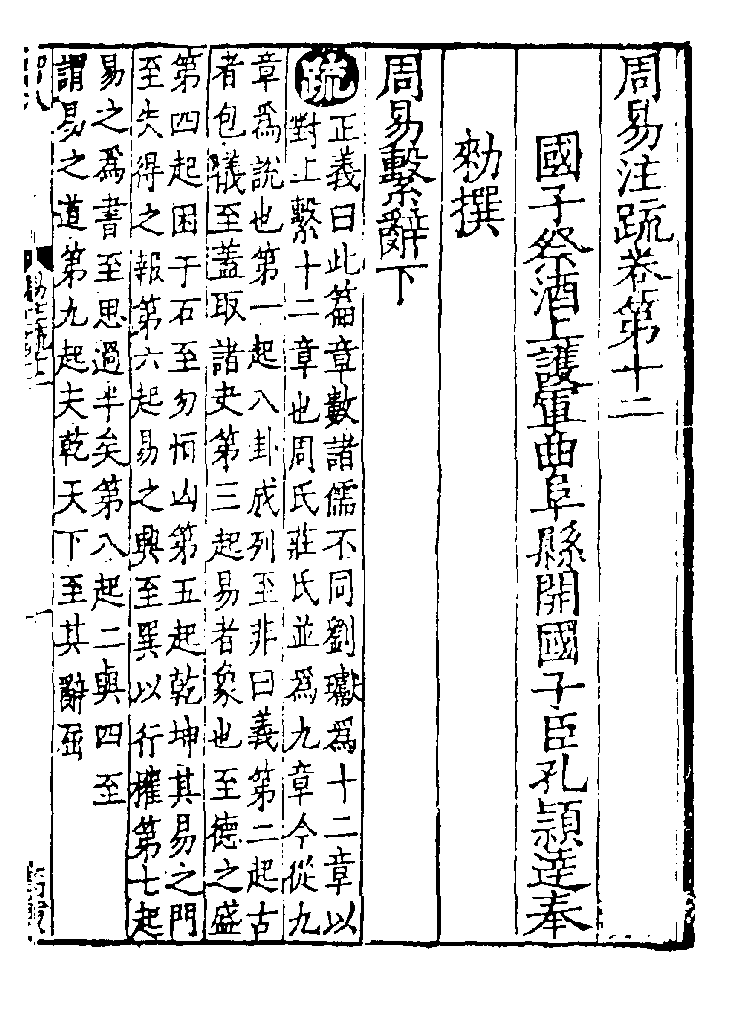 周易注疏卷第十二
國子祭酒上護軍曲阜縣開國子臣孔穎達奉
勑撰
周易繫辭下
疏
正義曰此篇章數諸儒不同劉瓛爲十二章以
對上繫十二章也周氏莊氏並爲九章今從九
章爲說也第一起八卦成列至非曰義第二起古
者包犧至蓋取諸夬第三起易者象也至德之盛
第四起困于石至勿恒凶第五起乾坤其易之門
至失得之報第六起易之興至巽以行權第七起
易之爲書至思過半矣第八起二與四至
謂易之道第九起夫乾天下至其辭屈